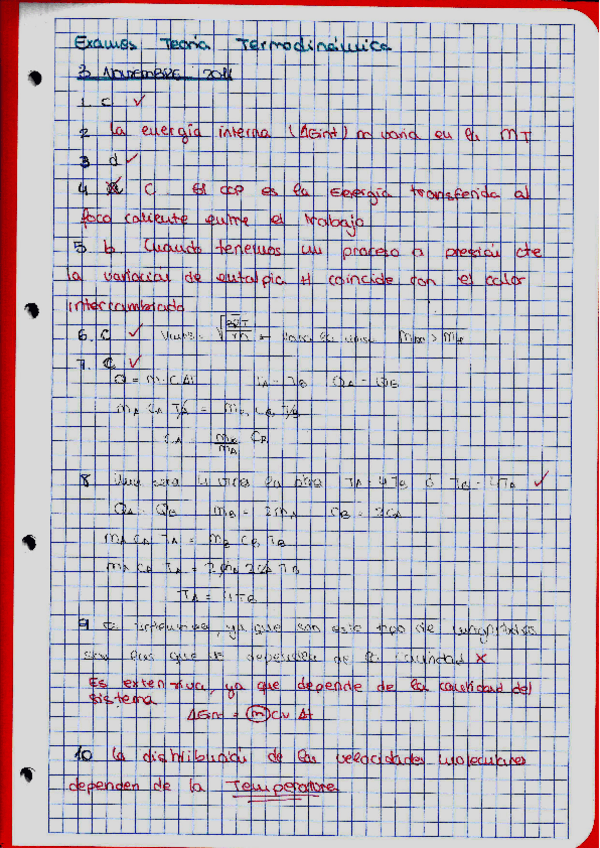 Examen Teoria Termodinámica
3 Noviembre 2011
1. C ✓
2 La energía interna (ΔEint) no varia en la MT
3 d ✓
4 C El COP es la Energía transferida al
foco caliente entre el trabajo
5 b Cuando tenemos un proceso a presión cte
la variación de entalpia H coincide con el calor
intercambiado
6. C ✓
7. C ✓
Q = m·C·Δt QA = QB
mA CA TA = mB CB TB
CA = mB/mA CB
8 TA = 4TB ó ✓
QA = QB mB = 2mA CB = 2CA
mA CA TA = mB CB TB
mA CA TA = 2mA 2CA TB
TA = 4TB
9 ya que son este tipo de
las que dependen de la cantidad ×
Es extensiva, ya que depende de la cantidad del
sistema
ΔEint = m Cv Δt
10 La distribución de las velocidades moleculares
dependen de la Temperatura